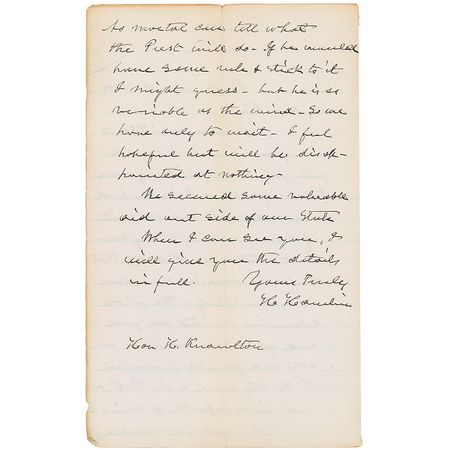 No mortal can tell what
the Prest will do - If he would
have some rule & stick to it
I might guess - but he is as
variable as the wind - So we
have only to wait - I feel
hopeful but will be disap-
pointed at nothing -
We secured some valuable
aid out side of our State
When I can see you, I
will give you the details
in full.
Yours Truly
H Hamlin
Hon H. Knowlton